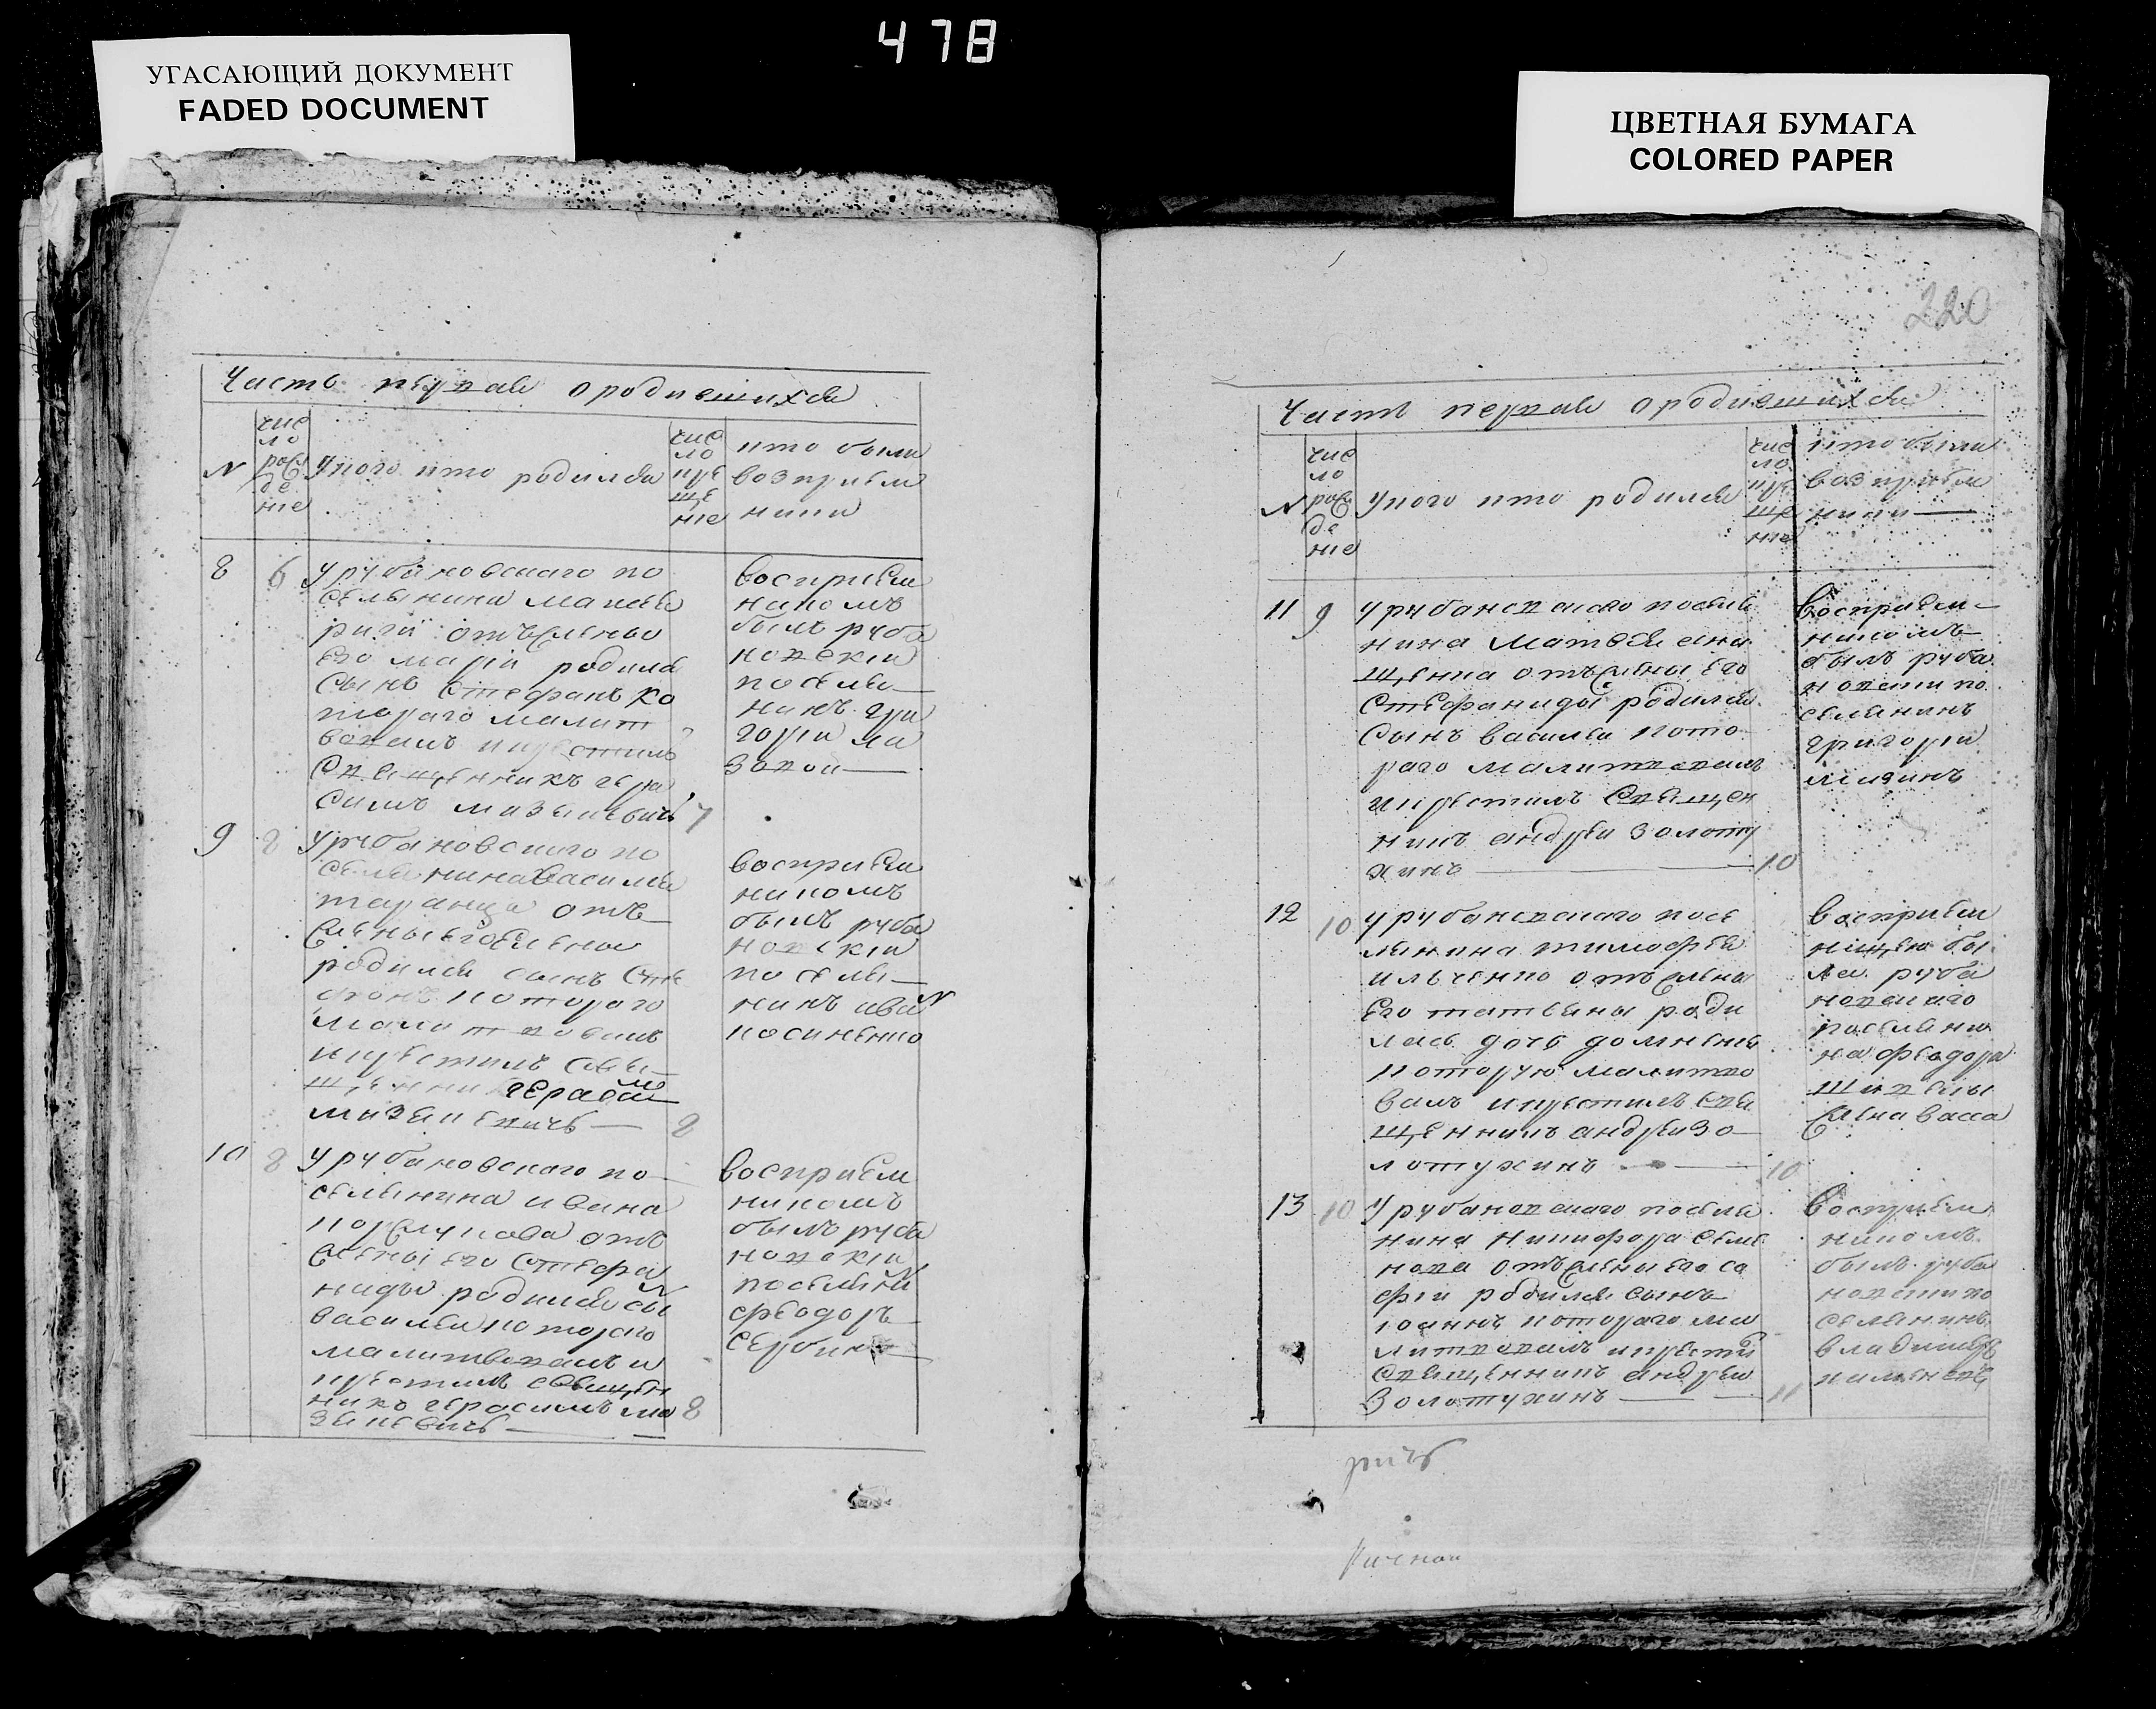 478
УГАСАЮЩИЙ ДОКУМЕНТ
FADED DOCUMENT
ЦВЕТНАЯ БУМАГА
COLORED PAPER
220
Часть первая о родившихся
N
чис
ло
рож
де
ние
у кого кто родился
чис
ло
кре
ще
ние
кто были
возприем
ники
8
6
у рубановского по
селянина
от жены
его марiи родился
сынъ стефанъ ко
тораго молит
вовалъ и крестилъ
священникъ гера
симъ мазаневичь
7
восприем
никомъ
былъ руба
новскiи
поселя
никъ гри
горiи ла
зовои
9
8
у рубановского по
селянина василия
таранца отъ
жены его елены
родился сынъ сте
фанъ которого
молитвовалъ
и крестилъ свя
щенни герасим
мазаневичь
8
восприем
никомъ
былъ руба
новскiи
поселя
нинъ иван
косиненко
10
8
у рубановского по
селянина ивана
отъ
жены его стефа
ниды родился сын
василеи котораго
малитвовалъ и
крестилъ священ
никъ герасимъ ма
заневичь
8
восприем
никомъ
былъ руба
новскiи
поселянин
феодоръ
сербинъ
Часть первая о родившихся
N
чис
ло
рож
де
ние
у кого кто родился
чис
ло
кре
ще
ние
кто были
возприем
ники
11
9
у рубановскаго поселя
нина матвея они
щенка отъ жены его
стефаниды родился
сынъ василеи кото
раго малитвовалъ
и крестилъ священ
никъ андреи золоту
хинъ
10
восприем
никомъ
былъ руба
новски по
селянинъ
григории
12
10
у рубановскаго посе
лянина тимофея
ильченко отъ жены
его татьяны роди
лась дочь домнекия
которую малитво
валъ и крестилъ свя
щенникъ андреи зо
лотухинъ
10
восприем
ницею бы
ла руба
новскаго
поселяни
на феодора
жена васса
13
10
у рубановскаго поселя
нина никифора семе
нова отъ жены его со
фiи родился сынъ
iоаннъ котораго ма
литвовалъ и крести
священникъ андреи
золотухинъ
11
восприем
никомъ
былъ руба
новски по
селянинъ
владимеръ